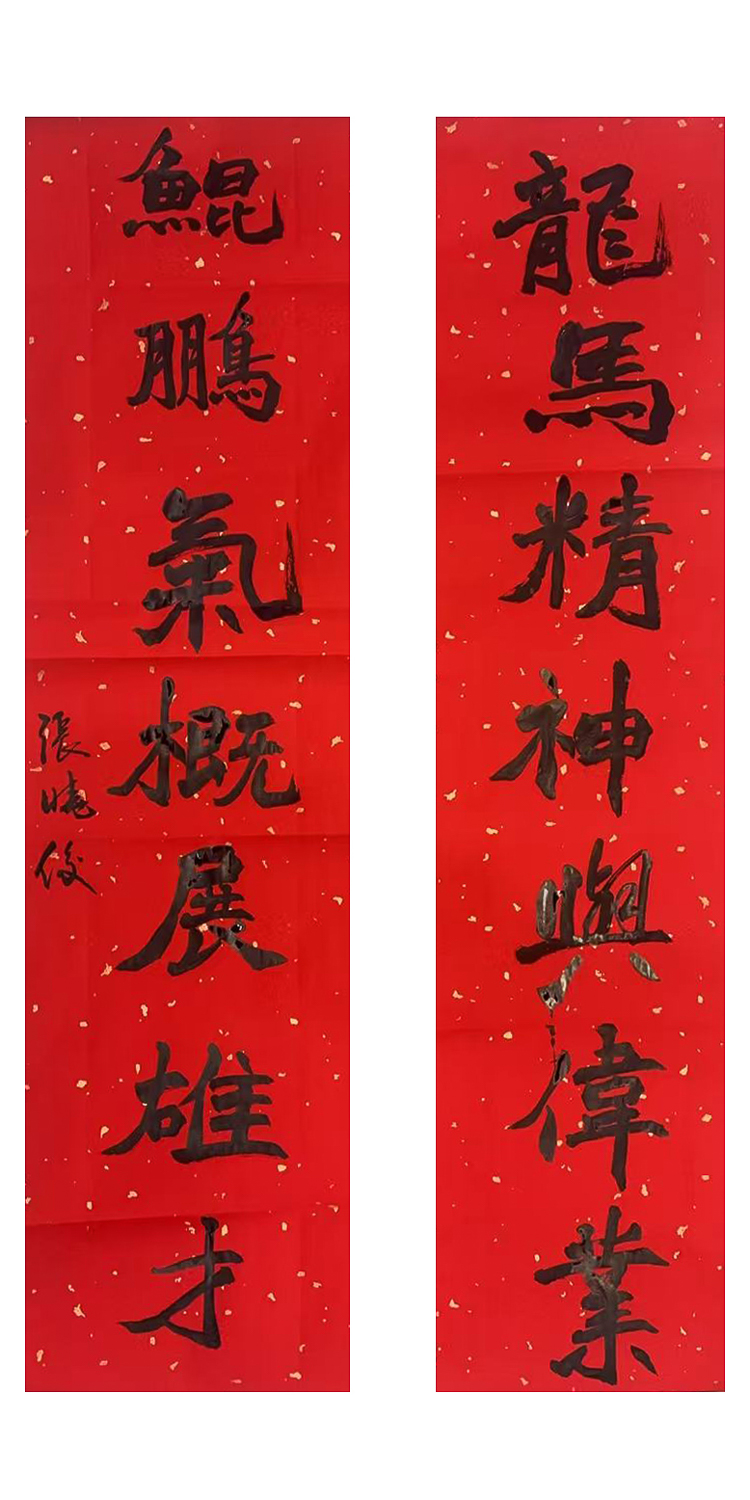 龍馬精神興偉業
鯤鵬氣概展雄才
張曉俊